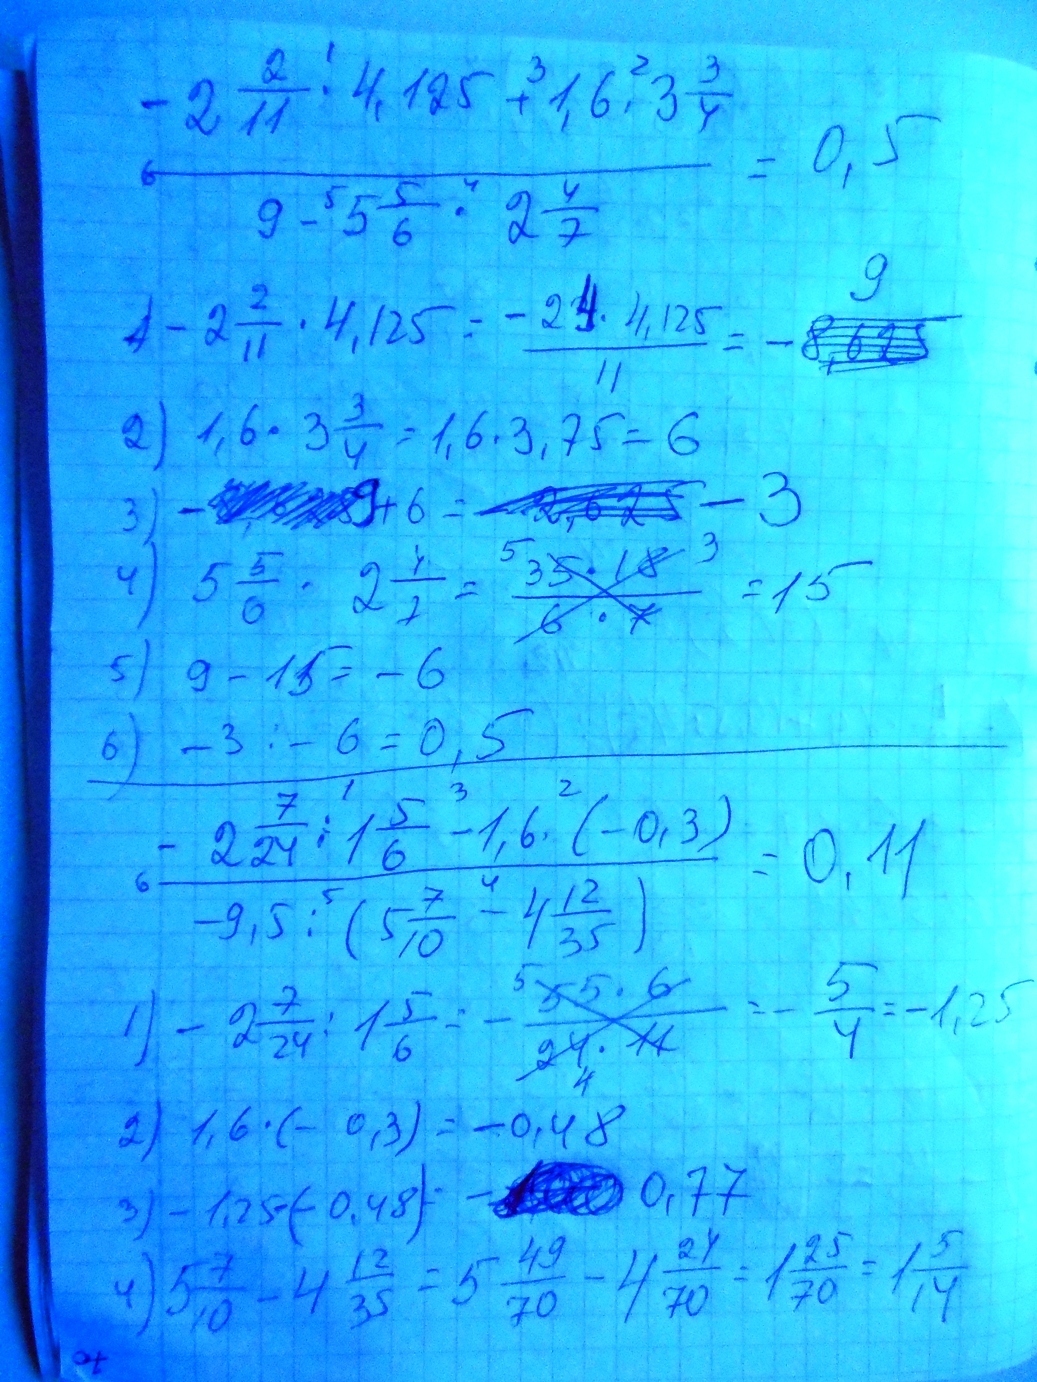 -2 2/11 · 4,125 + 1,6 · 3 3/4
= 0,5
9 - 5 5/6 · 2 4/7
1) -2 2/11 · 4,125 = -24 · 4,125 / 11 = -9
2) 1,6 · 3 3/4 = 1,6 · 3,75 = 6
3) -9 + 6 = -3
4) 5 5/6 · 2 4/7 = 35 · 18 / 6 · 7 = 15
5) 9 - 15 = -6
6) -3 : -6 = 0,5
-2 7/24 : 1 5/6 - 1,6 · (-0,3)
= 0,11
-9,5 : (5 7/10 - 4 12/35)
1) -2 7/24 : 1 5/6 = -55 · 6 / 24 · 11 = -5/4 = -1,25
2) 1,6 · (-0,3) = -0,48
3) -1,25 - (-0,48) = -0,77
4) 5 7/10 - 4 12/35 = 5 49/70 - 4 24/70 = 1 25/70 = 1 5/14